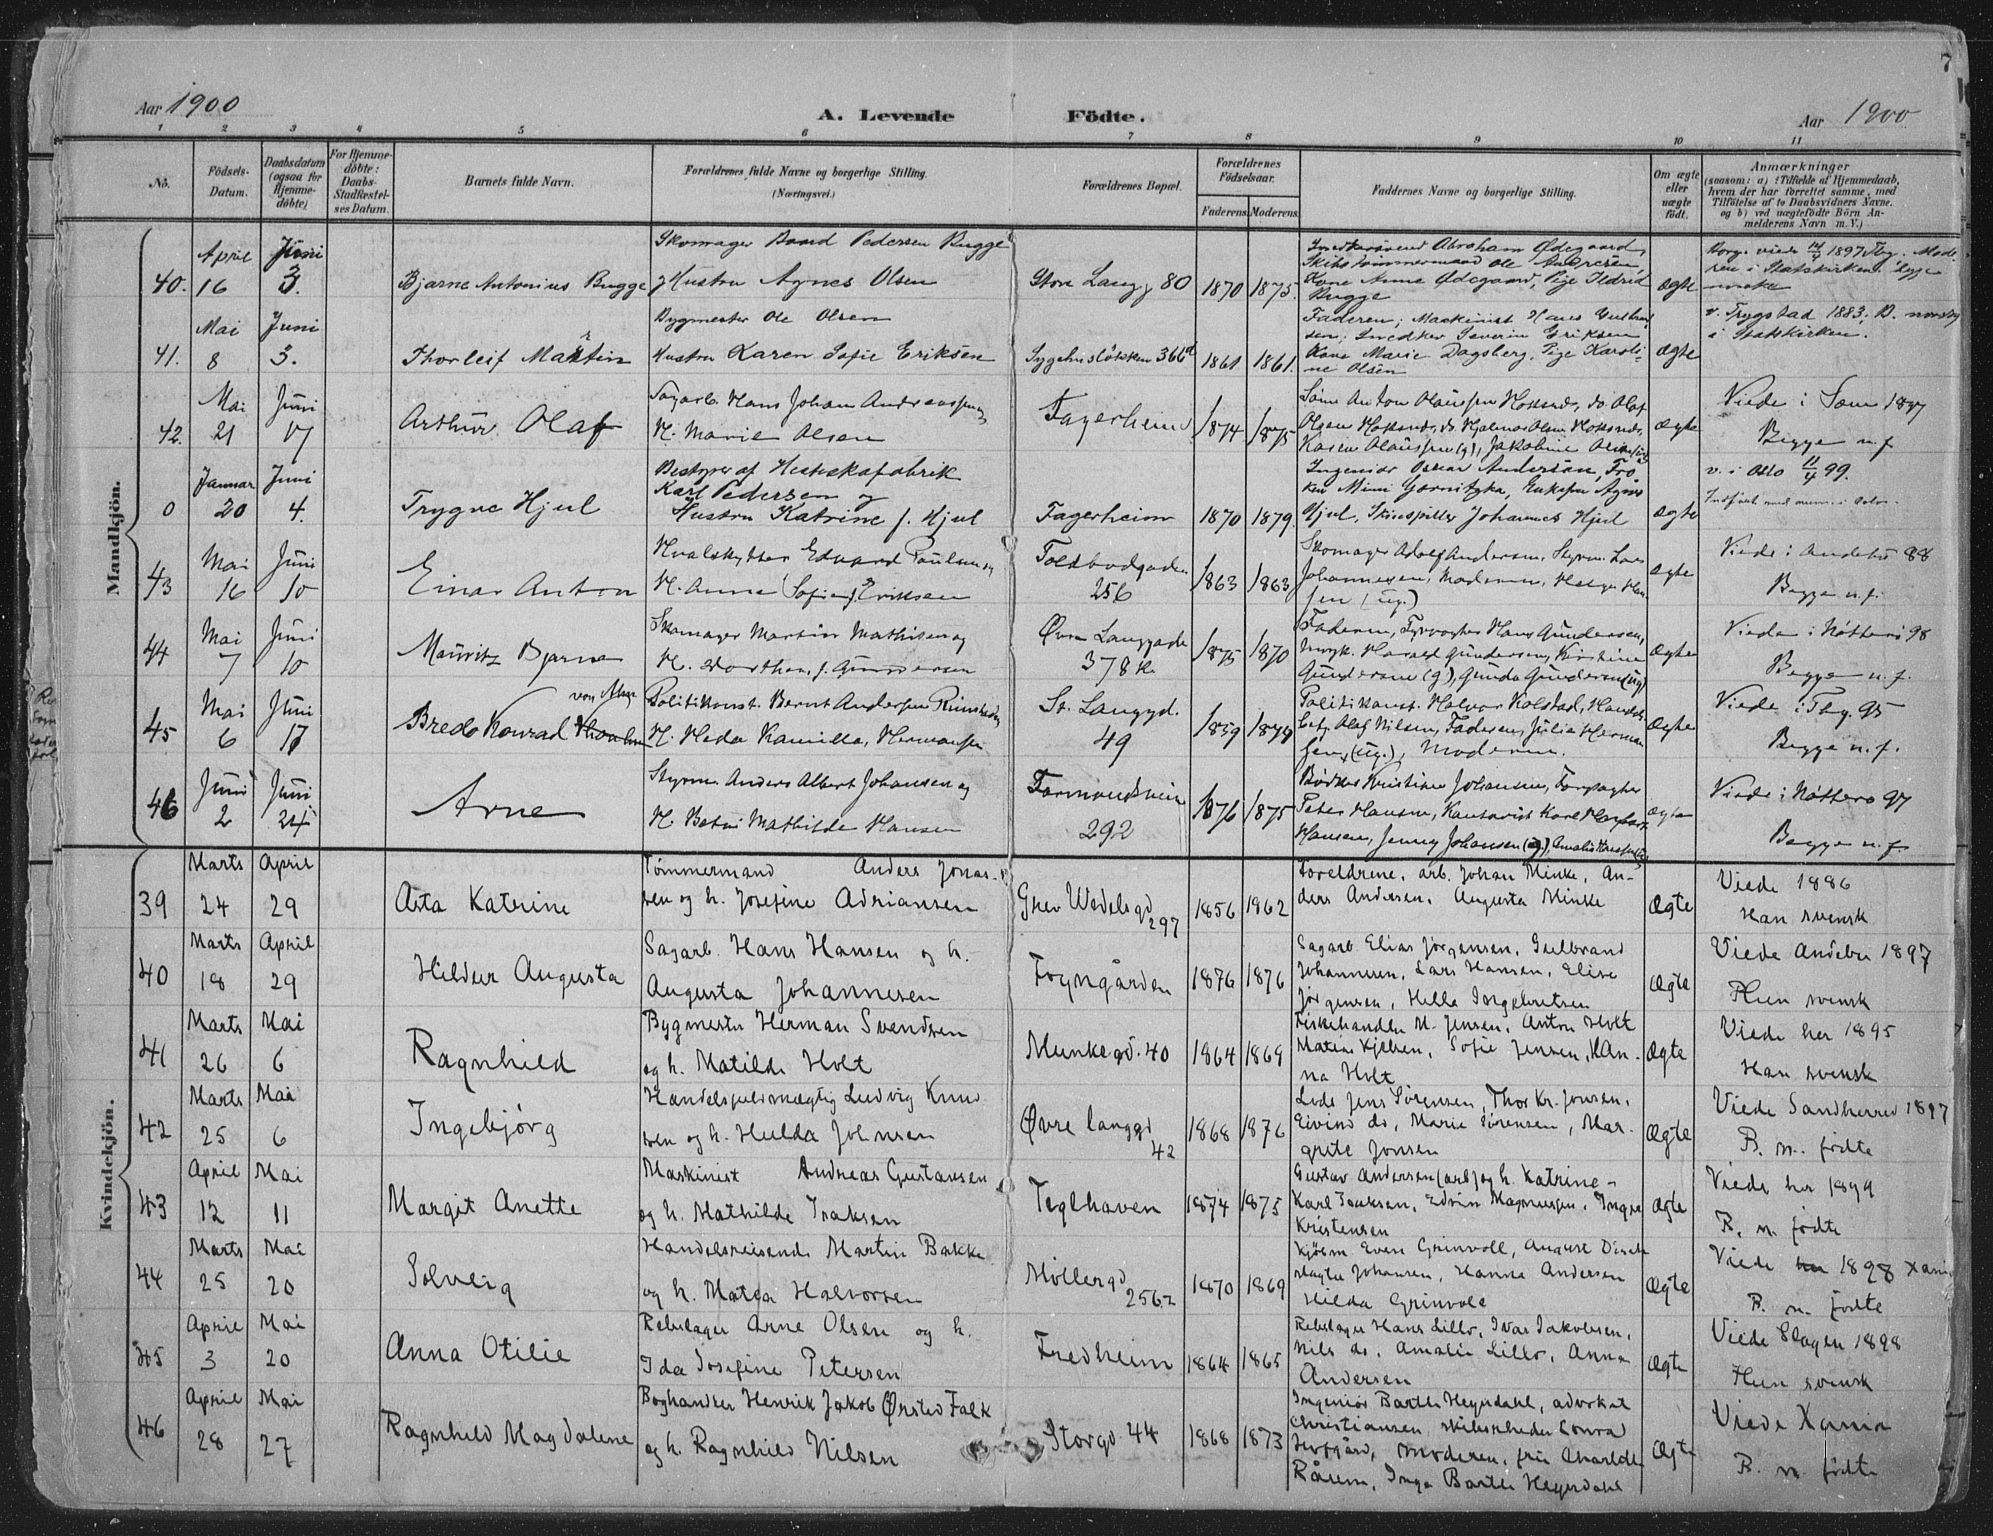 7
Aar 1900
A. Levende Födte.
Aar 1900
1 2 3 4 5 6 7 8 9 10 11
No.
Födsels-Datum.
Daabsdatum (ogsaa för Hjemme-döbte)
For Hjemme-döbte: Daabs-Stadfæstel-ses Datum.
Barnets fulde Navn.
Forældrenes fulde Navne og borgerlige Stilling. (Næringsvei.)
Forældrenes Bopæl.
Forældrenes Födselsaar.
Faderens. Moderens.
Faddernes Navne og borgerlige Stilling.
Om ægte eller uægte født.
Anmærkninger
(saasom: a) i Tilfælde af Hjemmedaab, hvem der har forrettet samme, med Tilföielse af to Daabsvidners Navne. og b) ved uægtefödte Börn An-melderens Navn m. V.)
Mandkjön.
40. April 16 Juni 3. Bjarne Antonius Bugge
Skomager Baard Pedersen Bugge
Hustru Agnes Olsen
Store Langg 80 1870 1875.
Kone Anna Ødegaard, Pige
Bugge
ægte
41. Mai 8 Juni 3. Thorleif Martin
Bygmester Ole Olsen
Hustru Karen Sofie Eriksen
1861 1861.
Faderen, Maskinist Hans
Snedker Severin Eriksen
Kone Marie Dagsberg, Pige Karoli-
ne Olsen
ægte
v. Trygstad 1883. B. norske
i Statskirken.
42. Mai 21 Juni 17 Arthur Olaf
Sagarb. Hans Johan Andreassen
H. Marie Olsen
Fagerheim 1874 1875
ægte
Viede i Sem 1897
Begge n.f.
0 Januar 20 Juni 4. Trygve Hjul
Bestyrer af Hesteskofabrik
Karl Pedersen og
Hustru Katrine f. Hjul
Fagerheim 1870 1879.
Ingeniør Oscar Andersen, Frø
ken Mimi Gornitzka, Enkefru Agnes
Hjul, Skuespiller Johannes Hjul
ægte
v. i Oslo 99.
43 Mai 16 Juni 10 Einar Anton
Hvalskytter Edvard Paulsen og
H. Anna Sofie Eriksen
Toldbodgaden
256 1863 1863
Skomager Adolf Andersen, Styrm. Lars
Johannesen, Moderen, Helga Han-
sen (ug.)
ægte
Viede i Andebu 88
Begge n.f.
44 Mai 7 Juni 10 Mauritz Bjarne
Skomager Martin Mathisen og
H. Dorthea f. Gundersen
Øvre Langgade
378 k 1875 1870
Faderen, Fyrvogter Hans Gundersen,
Harald Gundersen, Kirstine
Gundersen (g), Gunda Gundersen (ug)
ægte
Viede i Nötterö 98
Begge n.f.
45 Mai 6 Juni 17 Bredo Konrad
Politikonst. Bernt Andersen
H. Heda Kamilla, Hermansen
St. Langgd.
49 1859 1874
Politikonst. Halvor Kolstad, Handels
bet. Olaf Nilsen, Faderen, Julie Herman
sen, (ug.), Moderen.
ægte
Viede i Tbg. 95
Begge n.f.
46 Juni 2 Juni 24 Arne
Styrm. Anders Albert Johansen og
H. Betsi Mathilde Hansen
Formandsveien
292 1876 1875
Bödker Kristian Johansen, Forpagter
Peter Hansen,
Hansen, Jenny Johansen (ug),
ægte
Viede i Nötterö 97
Begge n.f.
Kvindekjön.
39 Marts 24 April 29 Asta Katrine
Tømmermand Anders Jonas-
sen og h. Josefine Adriansen
Grev Wedelsgd
297 1856 1862
Foreldrene, arb. Johan Minke, An-
ders Andersen, Augusta Minke
Ægte
Viede 1886
Han svensk
40 Marts 18 April 29 Hildur Augusta
Sagarb. Hans Hansen og h.
Augusta Johannesen
Foyngården 1876 1876
Sagarb. Elias Jørgensen, Gulbrand
Johannesen, Lars Hansen, Elise
Jørgensen, Hella Ingebretsen
Ægte
Viede Andebu 1897
Hun svensk
41 Marts 26 Mai 6 Ragnhild
Bygmester Herman Svendsen
og h. Matilde Holt
Munkegd. 40 1864 1869
Fiskehandler M. Jensen, Anton Holt
Matias Kjelsen, Sofie Jensen, An-
na Holt
Ægte
Viede her 1895
Han svensk
42 Marts 25 Mai 6 Ingebjørg
Handelsfuldmægtig Ludvig Knud
sen og h. Hulda Johnsen
Øvre langgd
42 1868 1876
Lods Jens Sørensen, Thor Kr. Jonsen,
Eivind do, Marie Sørensen, Mar-
grete Jonsen
Ægte
Viede Sandherred 1897
B. n. fødte
43 April 12 Mai 11 Margit Anette
Maskinist Andreas Gustavsen
og h. Mathilde Isaksen
Teglhaven 1874 1875
Gustav Andersen (arb) og h. Katrine-
Karl Isaksen, Edvin Magnussen, Inga
Kristensen
Ægte
Viede her 1899
B. n. fødte
44 Marts 25 Mai 20 Solveig
Handelsreisende Martin Bakke
og h. Matea Halvorsen
Møllergd
256 1870 1869
Kjøbm Evers Grinvoll, August
Johansen, Hanna Andersen
Hilda Grinvole
Ægte
Viede her 1898 Xania
B. n. fødte
45 April 3 Mai 20 Anna Otilie
Rebslager Arne Olsen og h.
Ida Josefine Petersen
Fredheim 1864 1865
Rebslager Hans Lillo, Ivar Jakobsen,
Nils do, Amalie Lillo, Anna
Andersen
Ægte
Viede Slagen 1898
Hun svensk
46 April 28 Mai 27 Ragnhild Magdalene
Boghandler Henrik Jakob Ørsted Falk
og h. Ragnhild Nilsen
Storgd 44 1868 1873
Ingeniør Barth Heyerdahl, advokat
Christiansen, skibsrheder Conrad
moderen, fru
Råsen, Inga Barth Heyerdahl
Ægte
Viede Xania
B. n. fødte